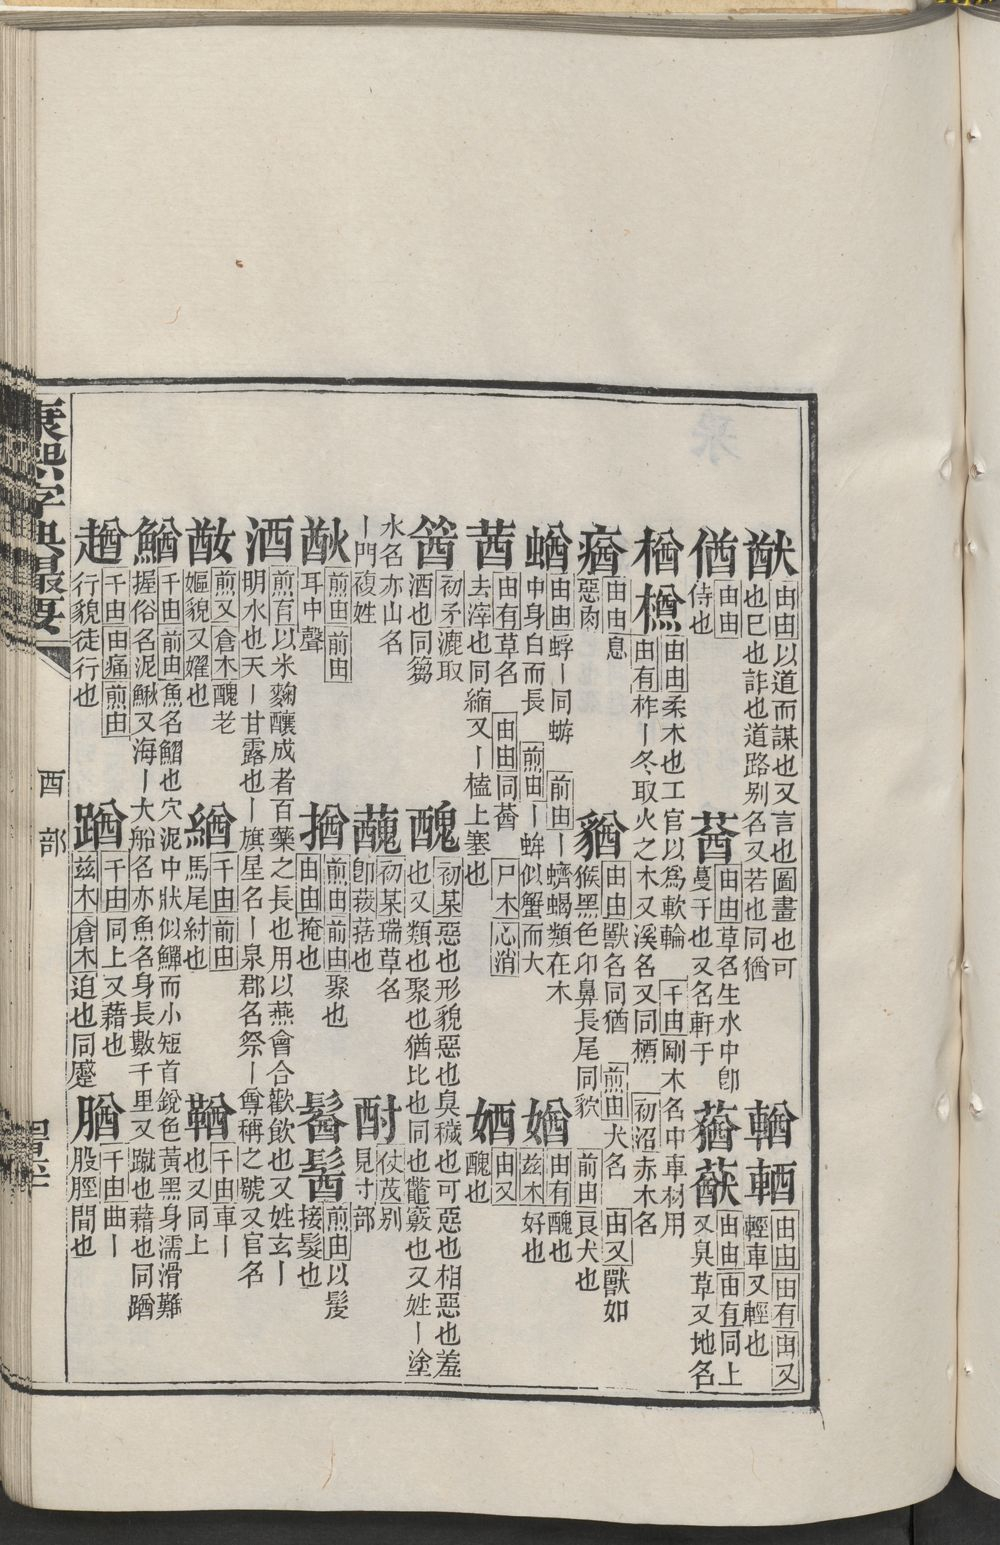 猷 由由以道而謀也又言也圖畫也可
也巳也詐也道路别名又若也同猶
輶䡛 由由由有由又
輕車又輕也
偤 由由
侍也
蕕 由由草名生水中卽
蔓于也又名軒于
蕕蕕 由由由有同上
又臭草又地名
楢槱 由由柔木也工官以爲軟輪 千由剛木名中車材用
由有柞丨冬取火之木又溪名又同槱 初沼赤木名
㾞 由由息
惡肉
貐 由由獸名同猶 煎由犬名 由又獸如
猴黑色卬鼻長尾同貁 前由艮犬也
蝤 由由蜉丨同蝣 前由丨蠐蝎類在木
中身白而長 煎由丨蛑似蟹而大
媨 由有醜也
兹木好也
莤 由有草名 由由同蕕 尸木心消
去滓也同縮又丨榼上塞也
㛗 由又
醜也
䇬 初矛漉取
酒也同篘
醜 初某惡也形貌惡也臭穢也可惡也相惡也羞
也又類也聚也猶比也同也鼈竅也又姓丨塗
水名亦山名
丨門複姓
䕜 初某瑞草名
卽菝葀也
酎 仗茂别
見寸部
㽕 煎由前由
耳中聲
揂 煎由前由聚也
由由掩也
䰇䰇 煎由以髮
接髮也
酒 煎有以米麴釀成者百藥之長也用以燕會合歡飲也又姓玄丨
明水也天丨甘露也丨旗星名丨泉郡名祭丨尊稱之號又官名
㛮 煎又倉木醜老
嫗貌又嬥也
緧 千由前由
馬尾紂也
鞧 千由車丨
也又同上
鰌 千由前由魚名鰼也穴泥中狀似鱓而小短首銳色黃黑身濡滑難
握俗名泥鰍又海丨大船名亦魚名身長數千里又蹴也藉也同蹭
趥 千由由痛煎由
行貌徒行也
蹭 千由同上又藉也
兹木倉木迫也同蹙
䐐 千由曲丨
股脛間也
康熙字典最要
酉部